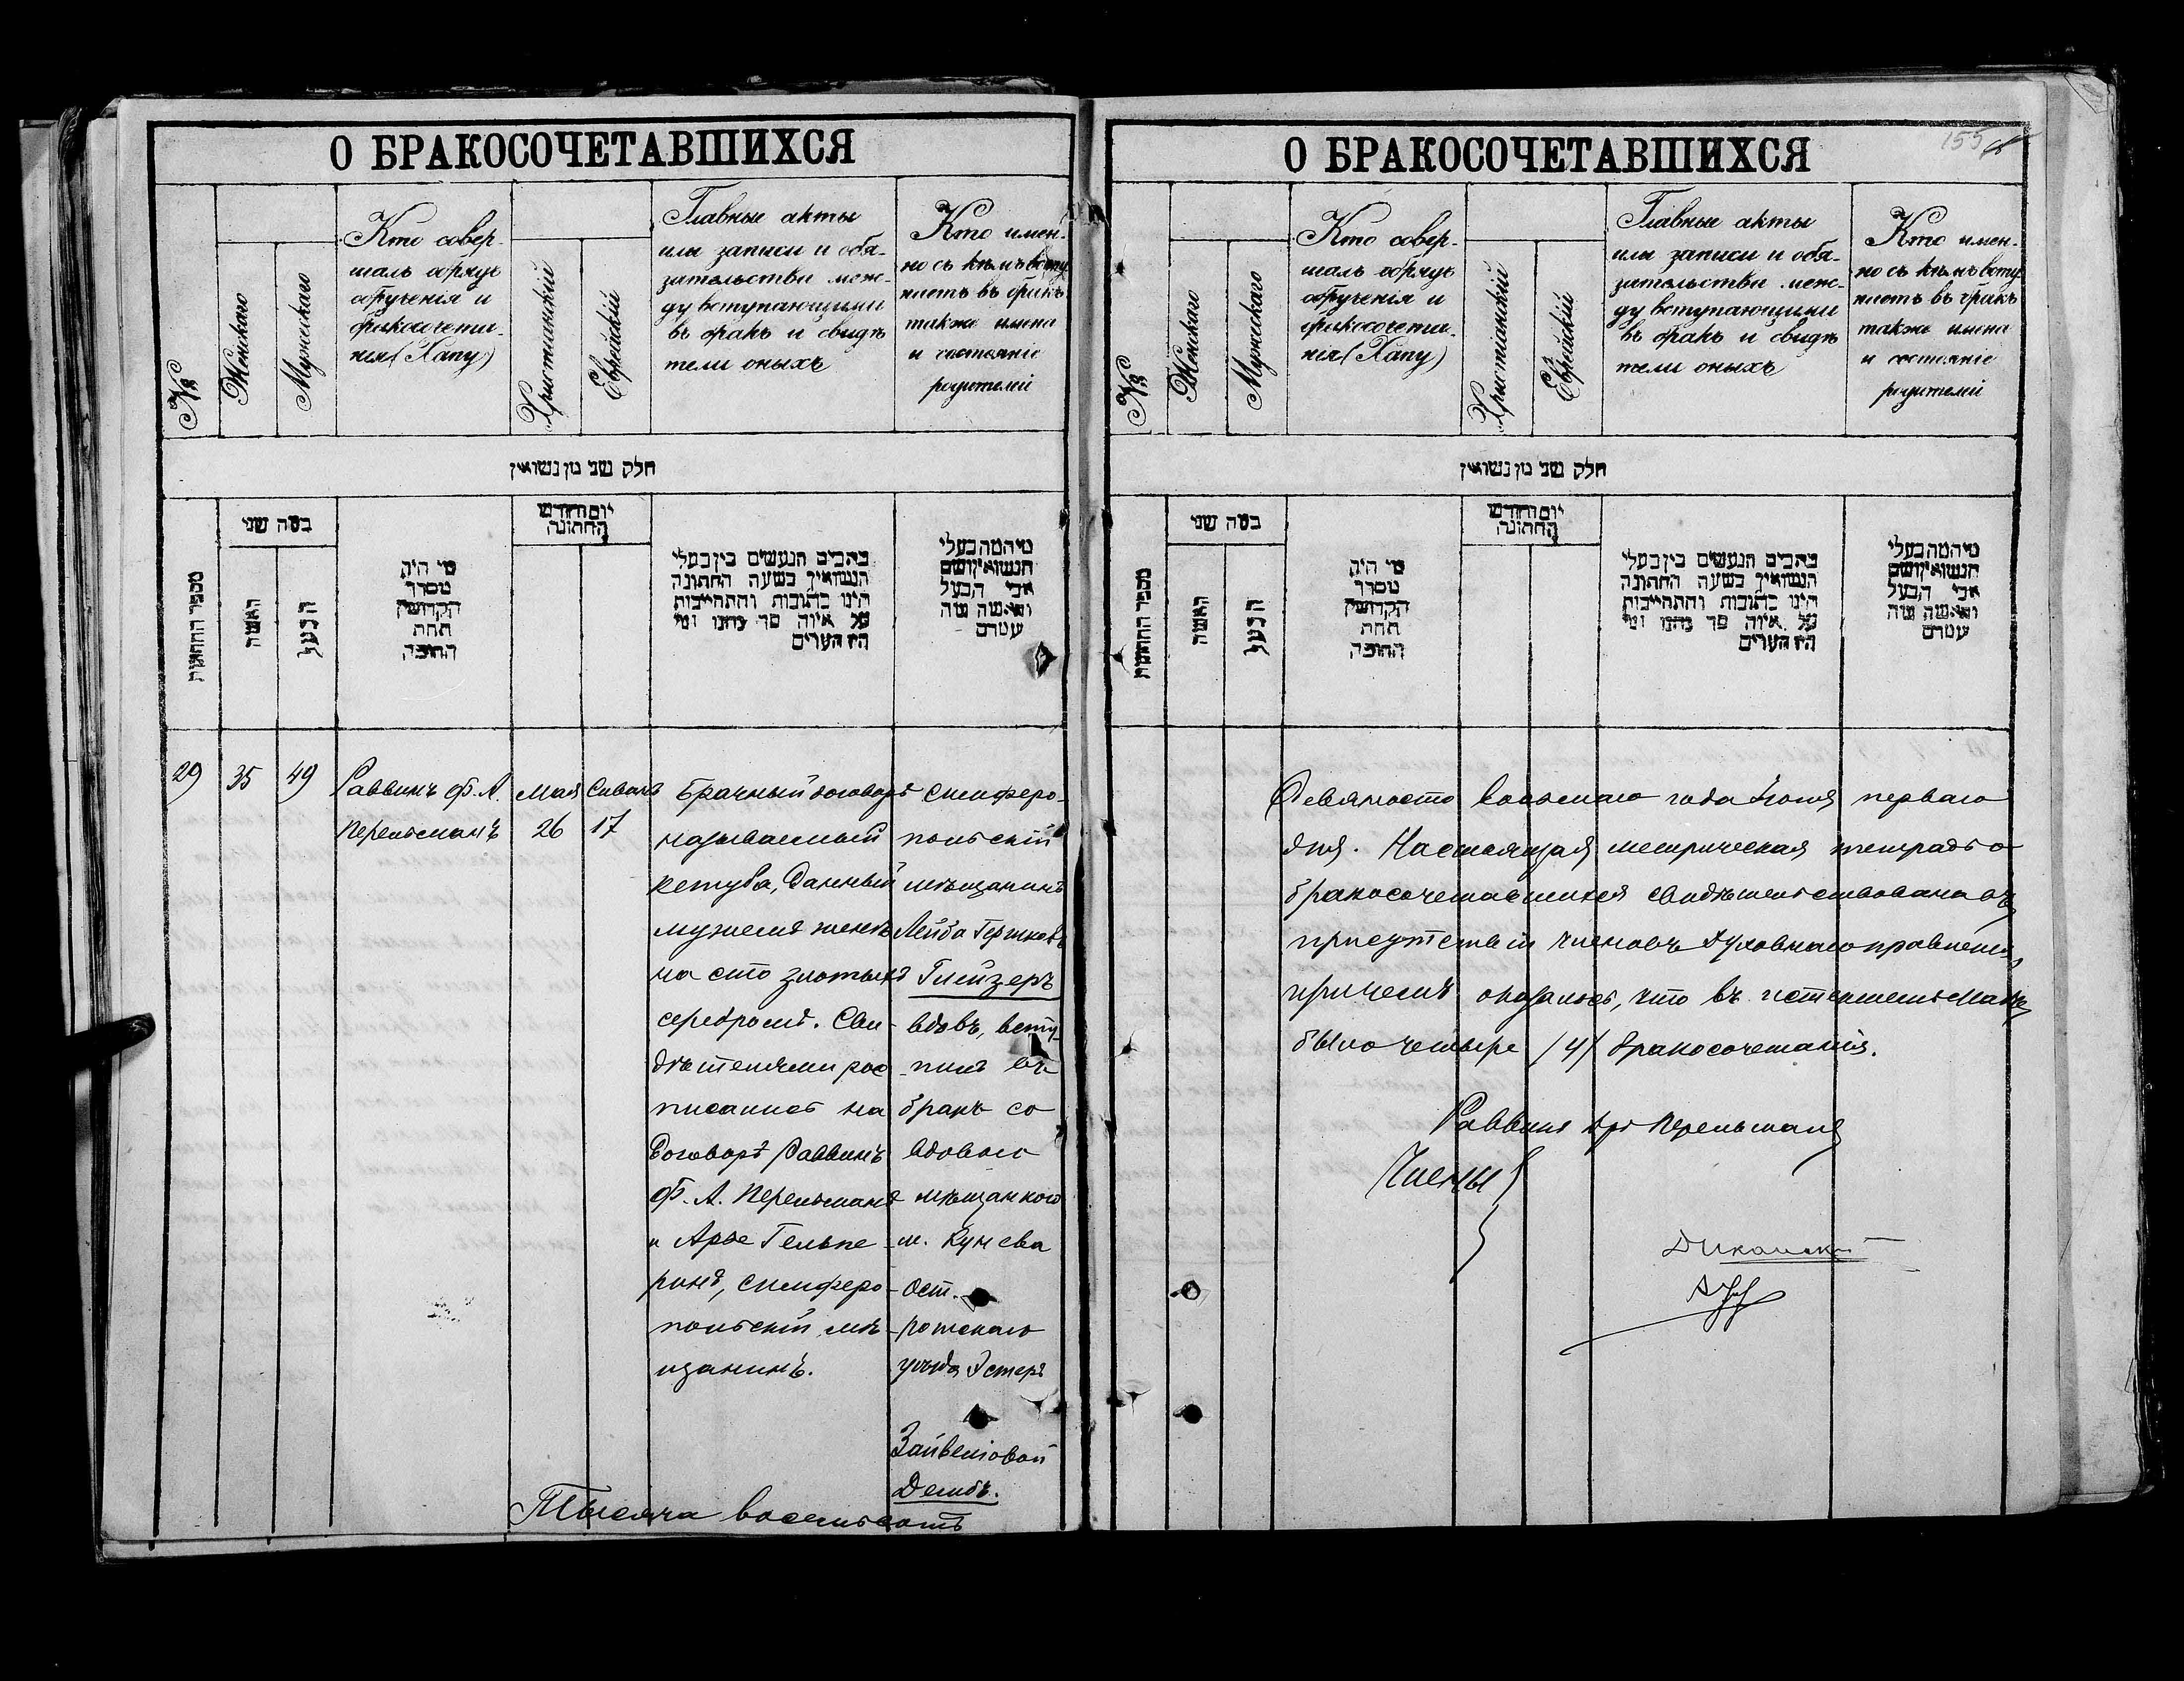 О БРАКОСОЧЕТАВШИХСЯ
№
Женскаго
Мужескаго
Кто совер-
шалъ обрядъ
обрученія и
бракосочета-
нія (Хупу)
Христіанскій
Еврейскій
Главные акты
или записи и обя-
зательства меж-
ду вступающими
въ бракъ и свидѣ
тели оныхъ
Кто имен-
но съ кѣмъ всту
паетъ въ бракъ
также имена
и состояніе
родителей
חלק שני מן נשואין
מספר החתונות
במה שני
האשה
הבעל
מי היה
מסדר
הקדושין
תחת
החופה
יום וחודש
החתונה
כתבים הנעשים בין בעלי
הנשואין בשעה החתונה
היינו כתובות והתחייבות
על איזה סך נתנו ומי
היו העדים
מי המה בעלי
הנשואין ושם
אבי הבעל
והאשה
29
35
49
Раввинъ Ф. А.
Перельманъ
Мая
26
Сиванъ
17
Брачный договоръ
называемый
кетуба, данный
мужемъ женѣ
на сто злотыхъ
серебромъ. Сви-
дѣтелями рос
писались на
договорѣ Раввинъ
Ф. А. Перельманъ
и Арье Гельпе
ринъ, симферо
польскій мѣ
щанинъ.
Симферо-
польскій
мѣщанинъ
Лейба Гершковъ
Глейзеръ
вдовъ, всту-
пилъ въ
бракъ со
вдовою
мѣщанкою
м. Кунева
Ост-
рожскаго
уѣзда Эстеръ
Зайвеловой
Дембъ.
Тысяча восемьсотъ
О БРАКОСОЧЕТАВШИХСЯ
155
№
Женскаго
Мужескаго
Кто совер-
шалъ обрядъ
обрученія и
бракосочета-
нія (Хупу)
Христіанскій
Еврейскій
Главные акты
или записи и обя-
зательства меж-
ду вступающими
въ бракъ и свидѣ
тели оныхъ
Кто имен-
но съ кѣмъ всту
паетъ въ бракъ
также имена
и состояніе
родителей
חלק שני מן נשואין
מספר החתונות
במה שני
האשה
הבעל
מי היה
מסדר
הקדושין
תחת
החופה
יום וחודש
החתונה
כתבים הנעשים בין בעלי
הנשואין בשעה החתונה
היינו כתובות והתחייבות
על איזה סך נתנו ומי
היו העדים
מי המה בעלי
הנשואין ושם
אבי הבעל
והאשה
Девяносто восьмаго года Іюня перваго
дня. Настоящая метрическая тетрадь о
бракосочетавшихся свидѣтельствована въ
присутствіи членовъ Духовнаго правленія,
причемъ оказалось, что въ истекшемъ Маѣ
было четыре /4/ бракосочетанія.
Раввинъ Др Перельманъ
Члены